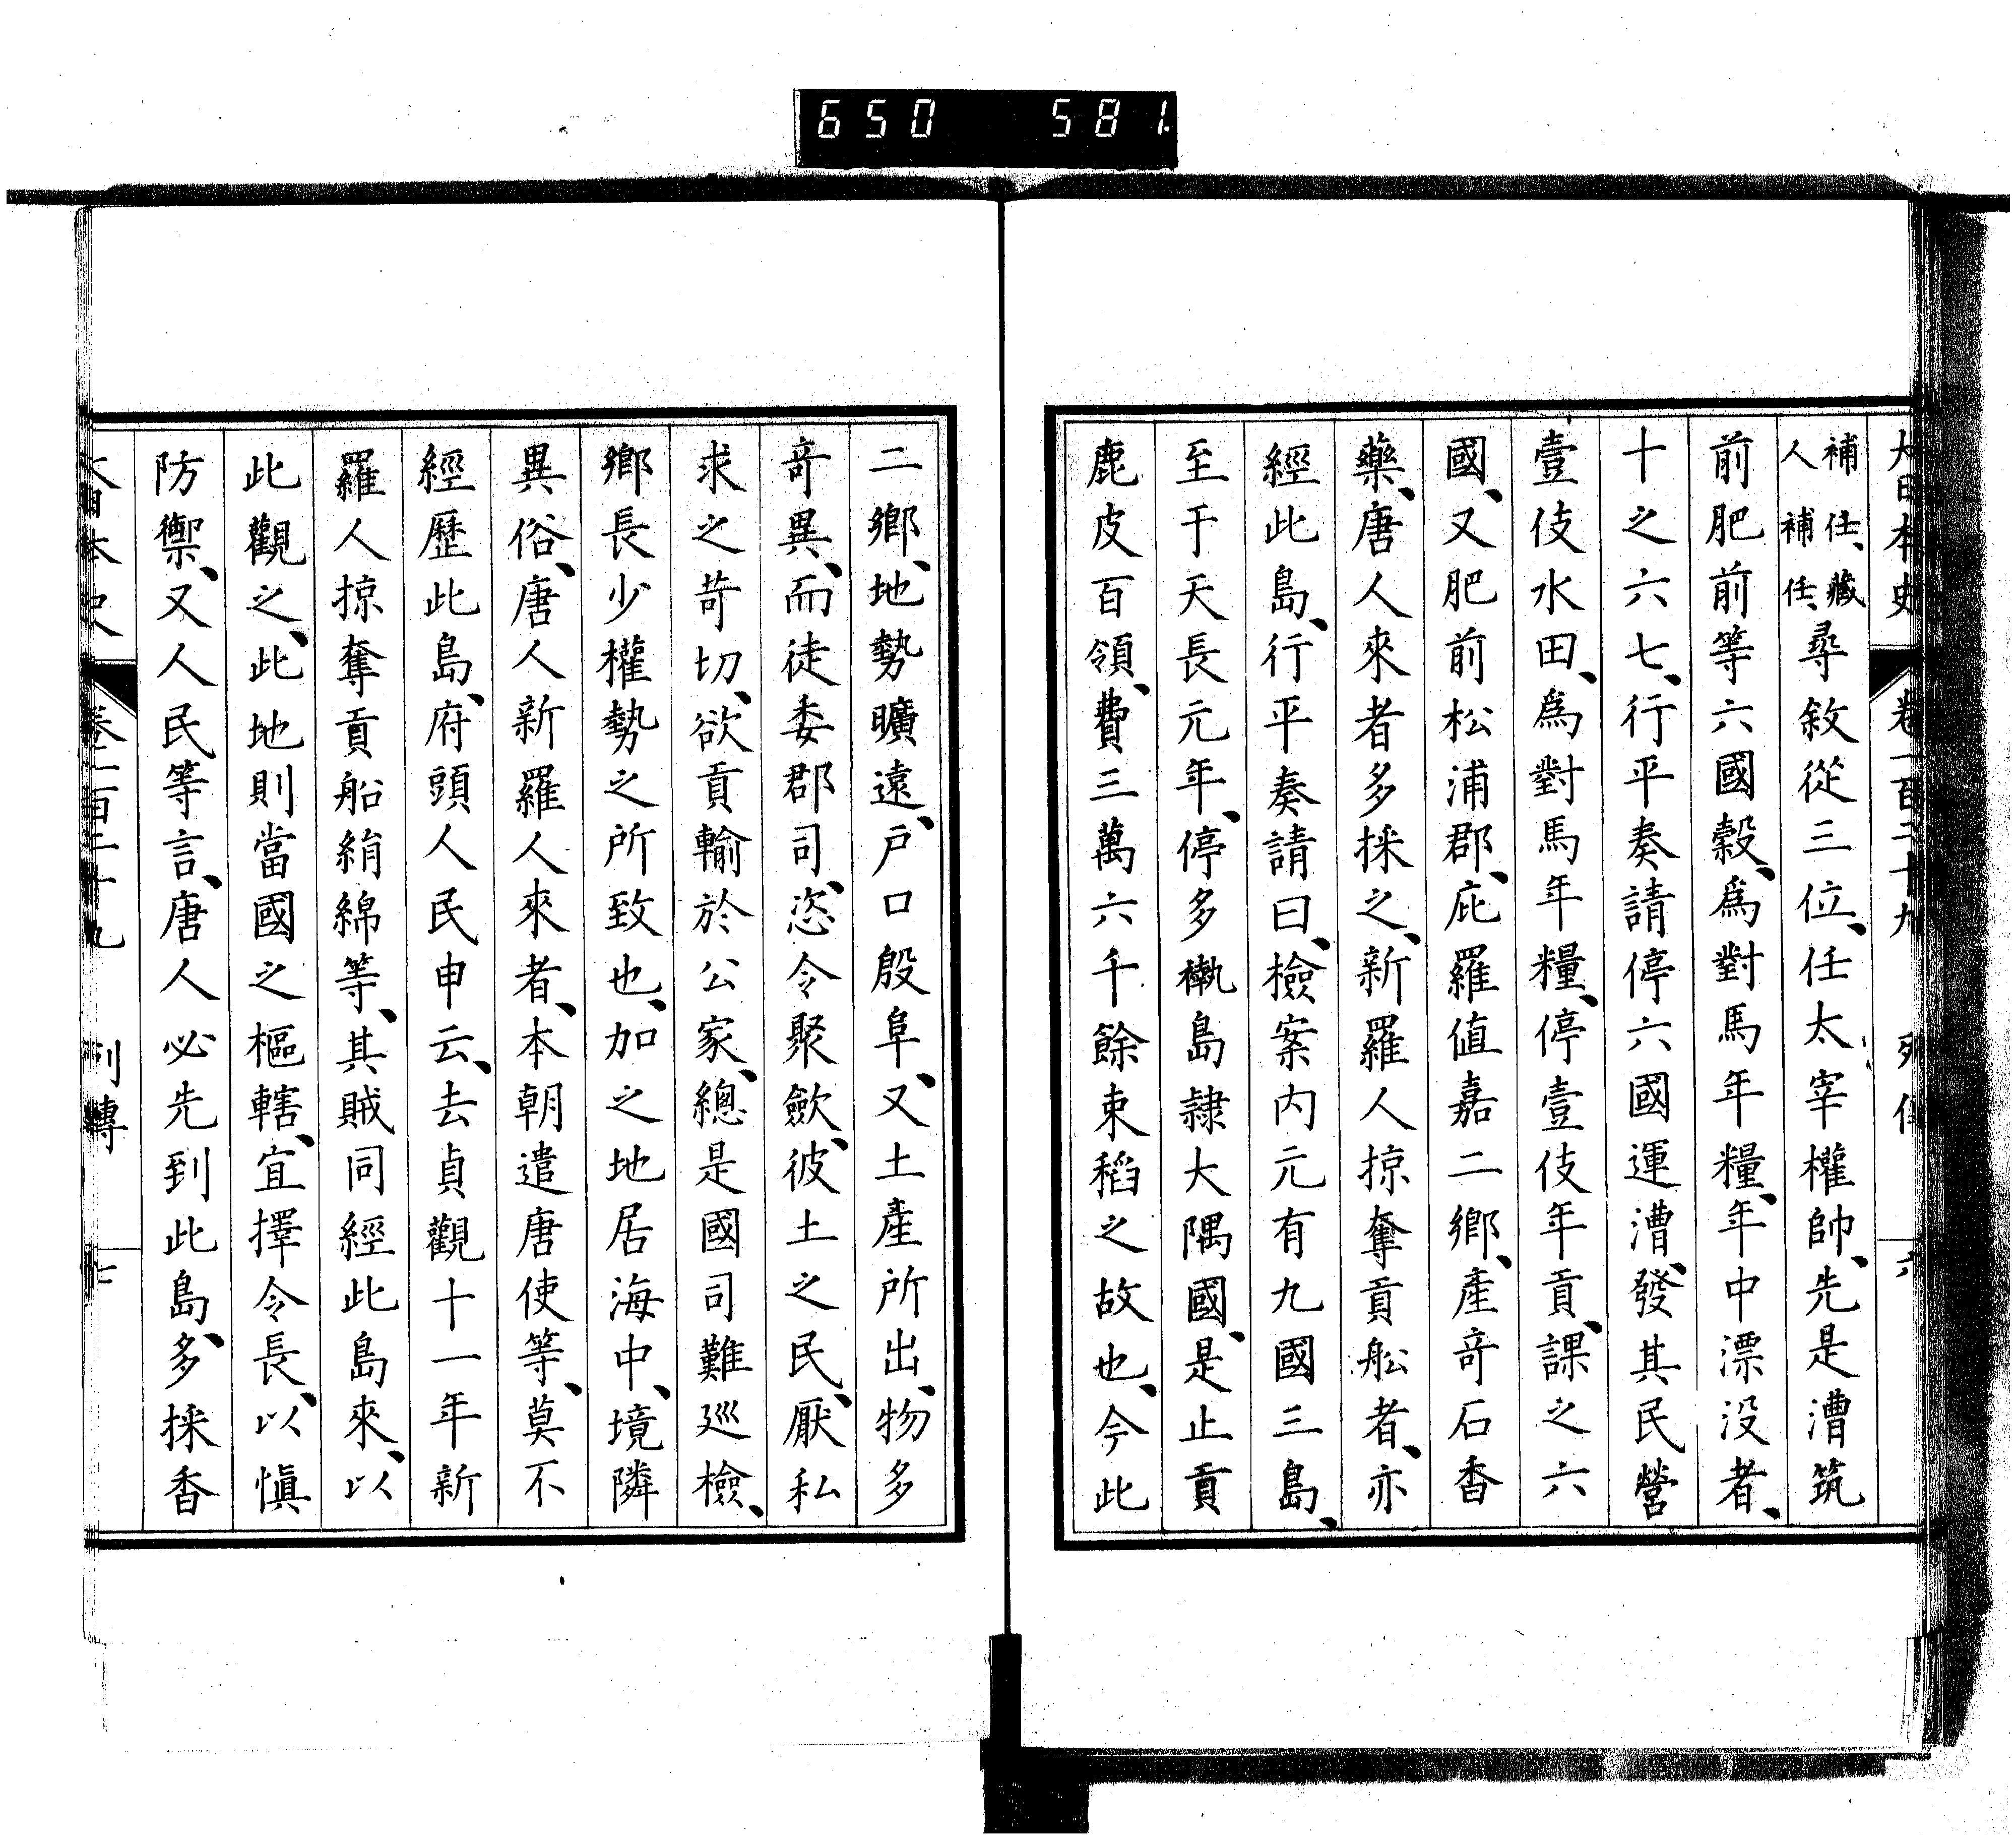 650 581
大日本史 卷一百二十九 列傳 六
補任、藏人補任、尋敘從三位、任太宰權帥、先是漕筑
前肥前等六國穀、爲對馬年糧、年中漂没者、
十之六七、行平奏請停六國運漕、發其民營
壹伎水田、爲對馬年糧、停壹伎年貢、課之六
國、又肥前松浦郡、庇羅値嘉二鄉、產竒石香
藥、唐人來者多採之、新羅人掠奪貢舩者、亦
經此島、行平奏請曰、檢案内元有九國三島、
至于天長元年、停多褹島隷大隅國、是止貢
鹿皮百領、費三萬六千餘束稻之故也、今此
二鄉、地勢曠遠、戸口殷阜、又土產所出、物多
竒異、而徒委郡司、恣令聚歛、彼土之民、厭私
求之苛切、欲貢輸於公家、總是國司難巡檢、
鄉長少權勢之所致也、加之地居海中、境隣
異俗、唐人新羅人來者、本朝遣唐使等、莫不
經歷此島、府頭人民申云、去貞觀十一年新
羅人掠奪貢船絹綿等、其賊同經此島來、以
此觀之、此地則當國之樞轄、宜擇令長、以愼
防禦、又人民等言、唐人必先到此島、多採香
大日本史 卷一百二十九 列傳 七